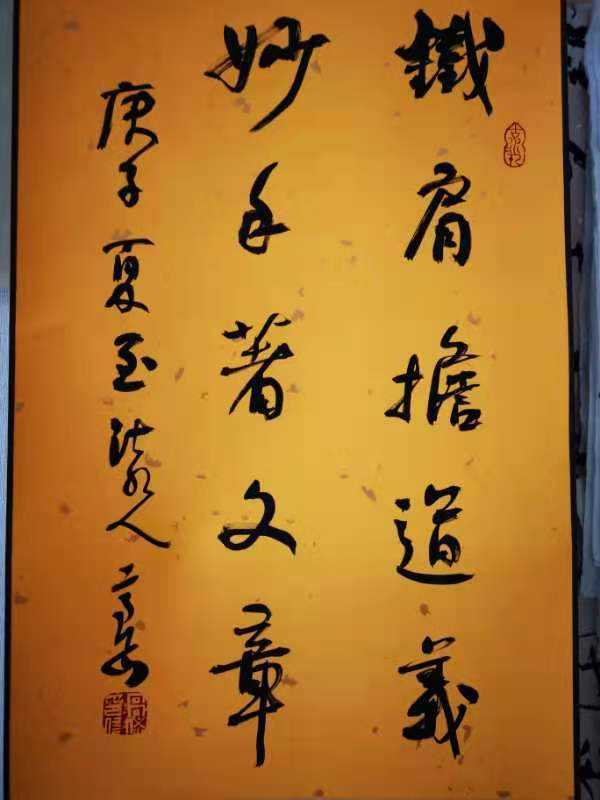 鐵肩擔道義
妙手著文章
庚子夏至